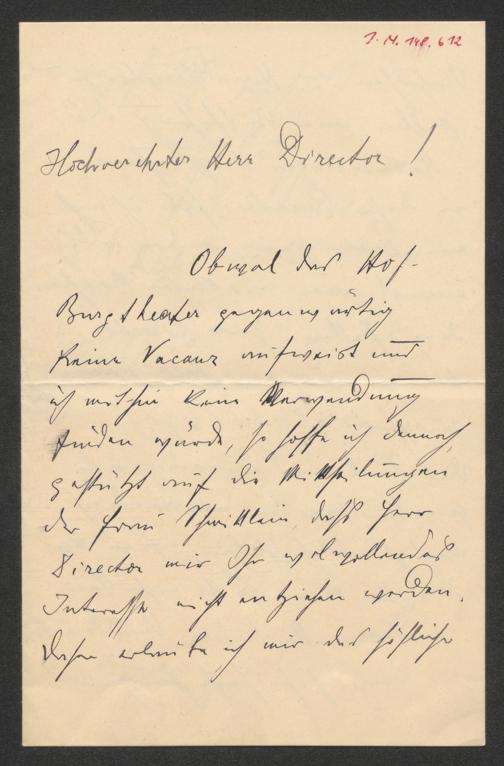 J. N. 148.612
Hochverehrter Herr Director!
Obwol das Hof-
Burgtheater gegenwärtig
keine Vacanz aufweist und
ich mithin keine Verwendung
finden würde, so hoffe ich dennoch,
gestützt auf die Mittheilungen
der Frau Schmittlein, daß Herr
Director mir Ihr wolwollendes
Interesse nicht entziehen werden.
Daher erlaube ich mir das höfliche